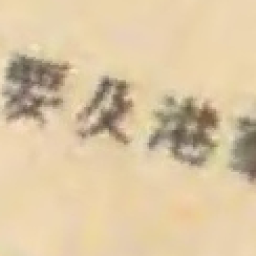 要及港